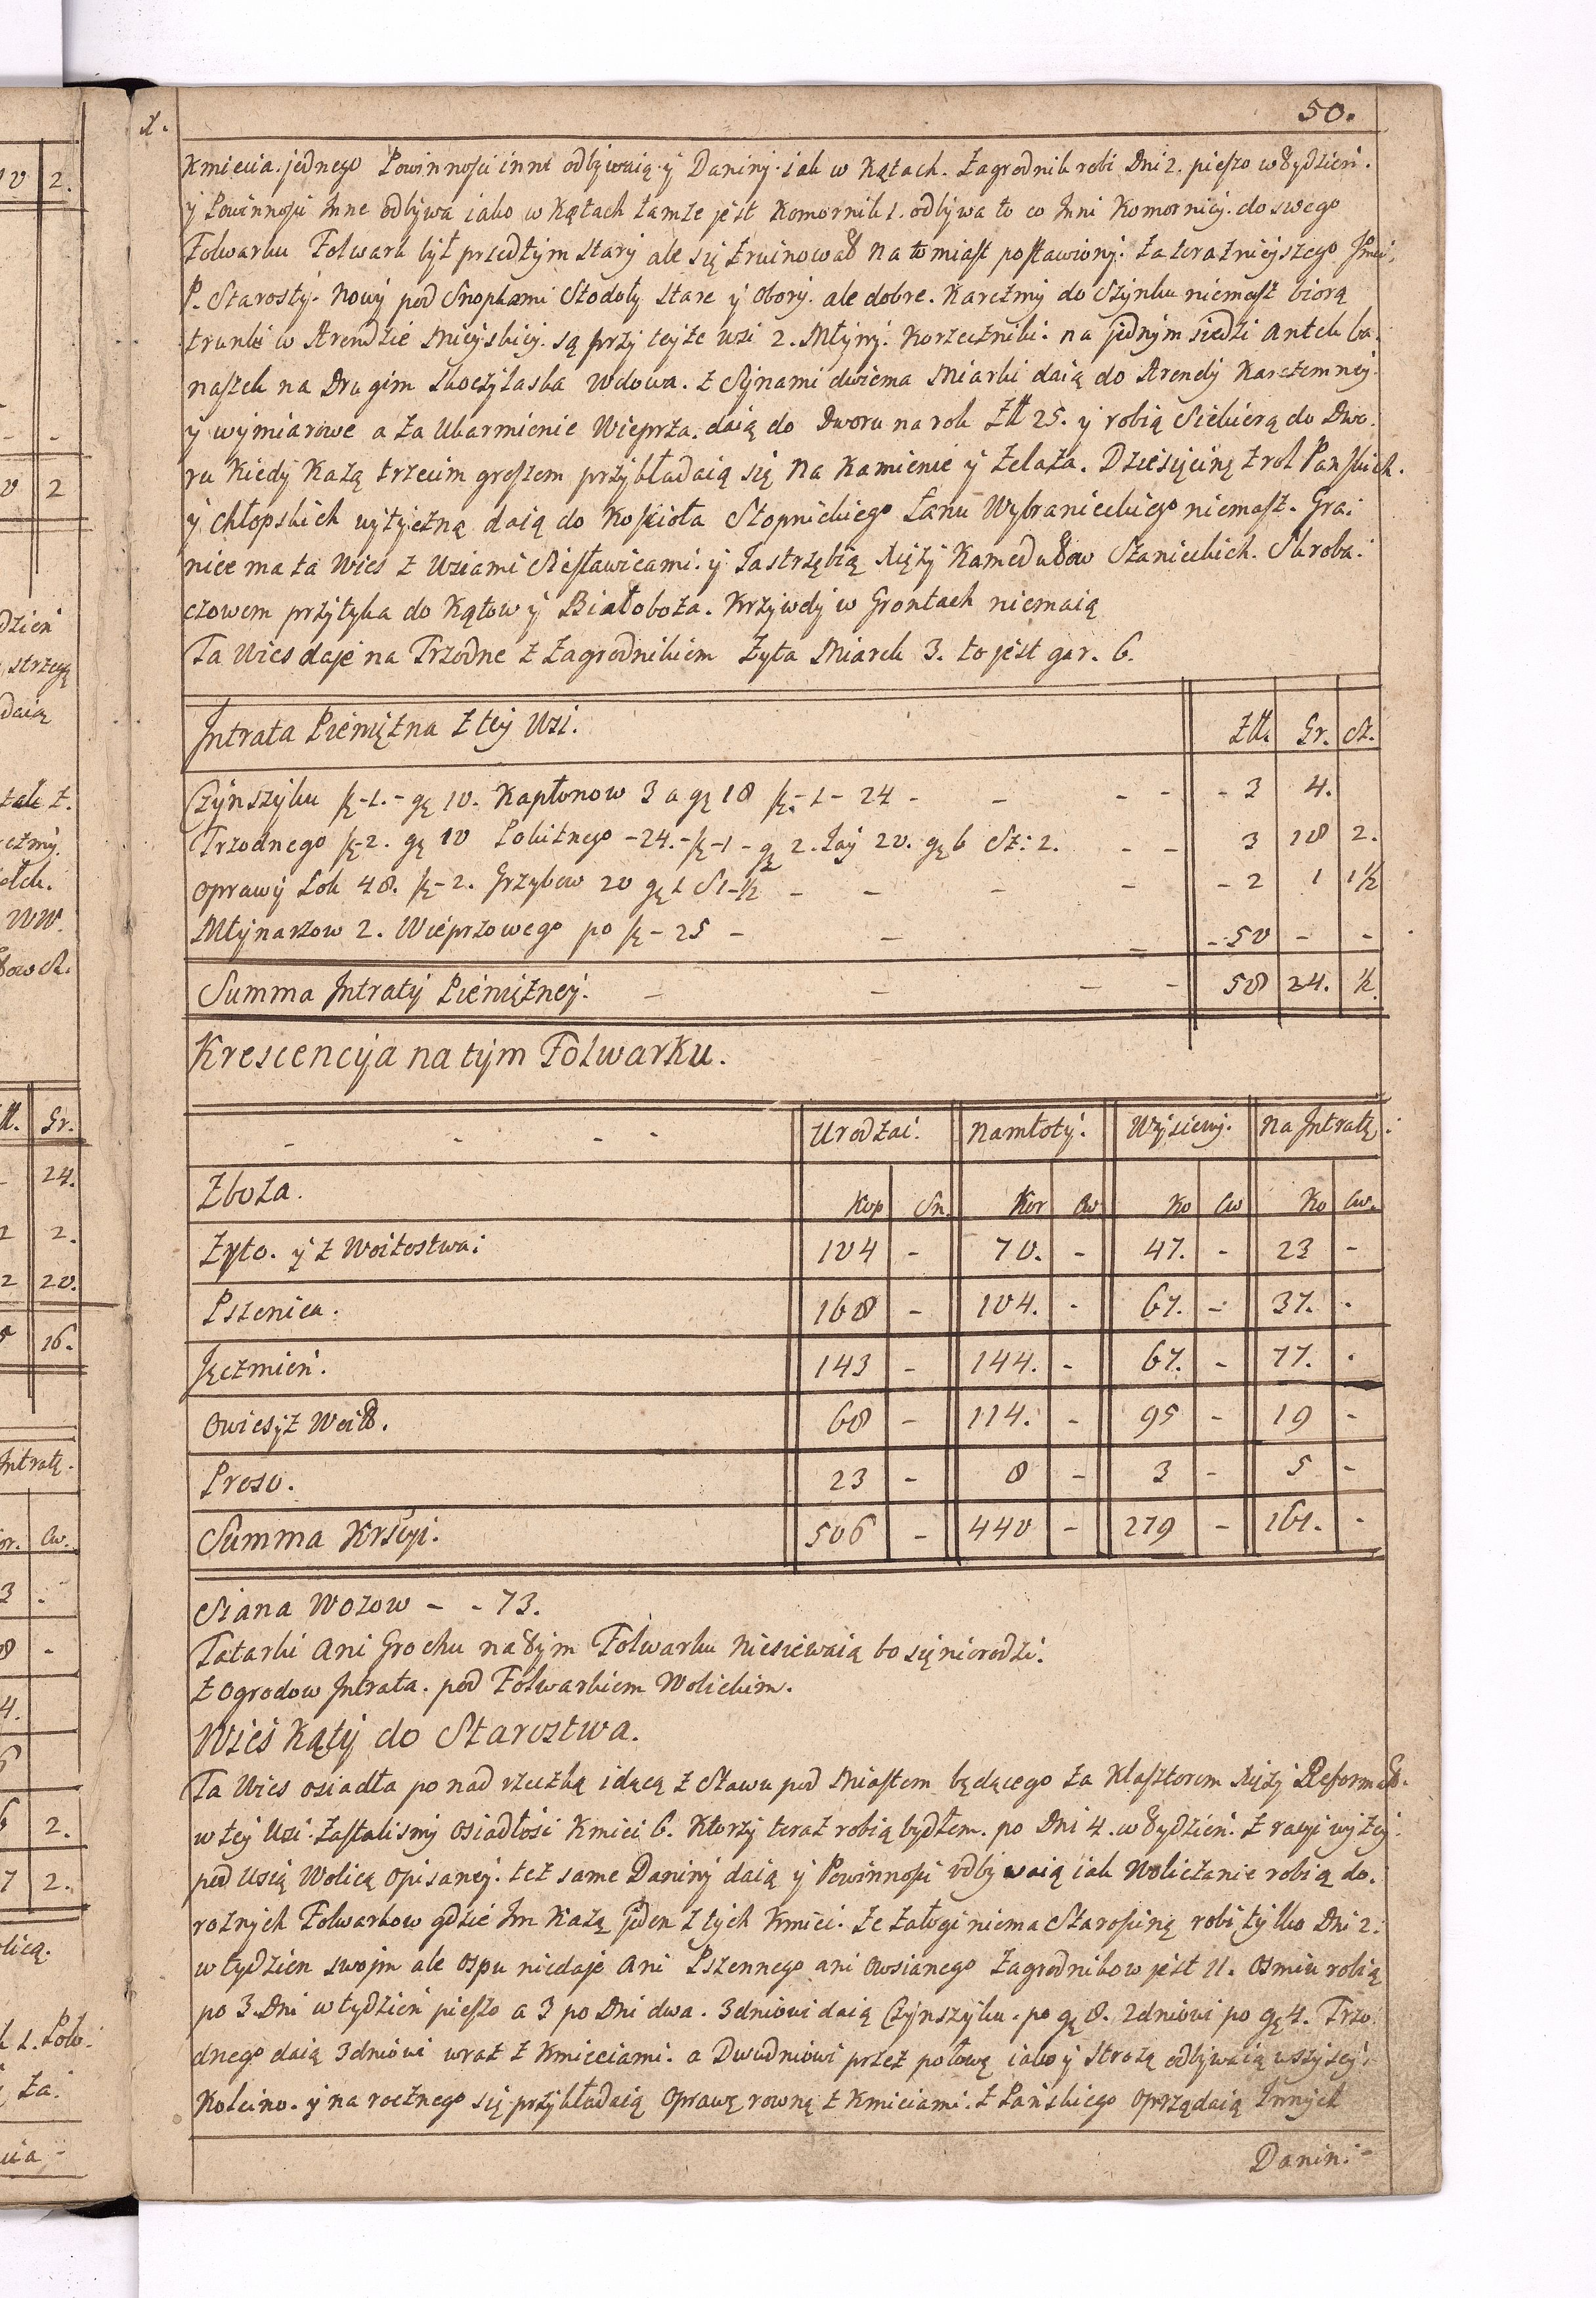 50.
x.
Kmiecia jednego Powinności inne odbywaią y Daniny iak w Kątach. Zagrodnik robi Dni 2. pieszo w Tydzień.
y Powinności Inne odbywa iako w Kątach tamże jest Komornik 1. odbywa to co Inni Komornicy do swego
Folwarku Folwark był przedtym stary ale się zruinował na to miast postawiony za teraznieyszego Jmci
P. Starosty Nowy pod Snopkami Stodoły stare y Obory ale dobre. Karczmy do Szynku niemasz biorą
trunki w Arendzie Mieyskiey są przy teyże wsi 2. Młyny Korzeczniki na jednym siedzi Antek Ba:
naszek na Drugim Skoczylaska Wdowa z Synami dwiema Miarki daią do Arendy Karczemney
y wymiarowe a za Ukarmienie Wieprza daią do Dworu na rok Zł 25. y robią Siekierą do Dwo:
ru Kiedy Każą trzecim groszem przykładaią się na Kamienie y Zelaza. Dziesięcinę z rol Pańskich
y chłopskich wytyczną daią do Kościoła Stopnickiego Łanu Wybranieckiego niemasz. Gra:
nice ma ta Wies z Wsiami Siesławicami y Jastrzębią Xięży Kamedułow Szanieckich. Skroba:
czowem przytyka do Kątow y Białoboża. Krzywdy w Grontach niemaią
Ta Wies daje na Trzodne z Zagrodnikiem Zyta Miarek 3. to jest gar. 6.
Intrata Pieniężna z tey Wsi. Zł. Gr. Sz.
Czynszyku f-1.- gę 10. Kapłonow 3 a gę 18 f.-1-24 - - - - - 3 4.
Trzodnego f-2. gę 10 Pobitnego -24.-f-1- gę 2. Jay 20. gę 6 Sz: 2. - - 3 18 2.
Oprawy Łok 48. f-2. Grzybow 20 gę 1 S1-½ - - - - - 2 1 1½
Młynarzow 2. Wieprzowego po f-25 - - - - 50 - -
Summa Intraty Pieniężney. - - - - 58 24. ½.
Krescencya na tym Folwarku.
- - - - Urodzai. Namłoty. Wysiewy. Na Intratę.
Zboża. Kop Sn. Kor Cw Ko Cw Ko Cw.
Zyto. y z Woitostwa: 104 - 70. - 47. - 23 -
Pszenica. 168 - 104. - 67. - 37. -
Jęczmień. 143 - 144. - 67. - 77. -
Owies y z Woit. 68 - 114. - 95 - 19 -
Proso. 23 - 8 - 3 - 5 -
Summa Krscyi. 506 - 440 - 279 - 161. -
Siana Wozow - - 73.
Tatarki Ani Grochu na Tym Folwarku niesiewaią bo się nierodzi.
Z Ogrodow Intrata pod Folwarkiem Wolickim.
Wieś Kąty do Starostwa.
Ta Wies osiadła po nad rzeczką idącą z Stawu pod Miastem będącego za Klasztorem Xięży Reformat.
w tey Wsi Zastalismy Osiadłości Kmieci 6. Ktorzy teraz robią bydłem po Dni 4. w Tydzień z racyi wyżey
pod Wsią Wolicą opisaney też same Daniny daią y Powinności odbywaią iak Woliczanie robią do
rożnych Folwarkow gdzie Im Każą jeden z tych Kmieci że załogi niema Starościną robi tylko Dni 2.
w tydzien swoim ale Ospu niedaje Ani Pszennego ani Owsianego Zagrodnikow jest 11. Osmiu robią
po 3. Dni w tydzień pieszo a 3 po Dni dwa. 3dniowi daią Czynszyku po gę 8. 2dniowi po gę 4. Trzo
dnego daią 3dniowi wraz z Kmieciami a Dwudniowi przez połowę iako y Strożą odbywaią wszyscy
Koleino y na rocznego się przykładaią Oprawę rowną z Kmieciami z Pańskiego Oprzędaią Innych
Danin:-